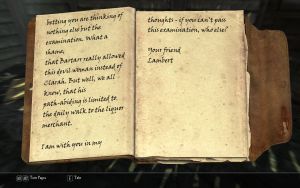 betting you are thinking of
nothing else but the
examination. What a
shame,
that Bartarr really allowed
this devil woman instead of
Clarah. But well, we all
know, that his
path-abiding is limited to
the daily walk to the liquor
merchant.
I am with you in my
thoughts - if you can't pass
this examination, who else?
Your friend
Lambert
Turn Pages
Take